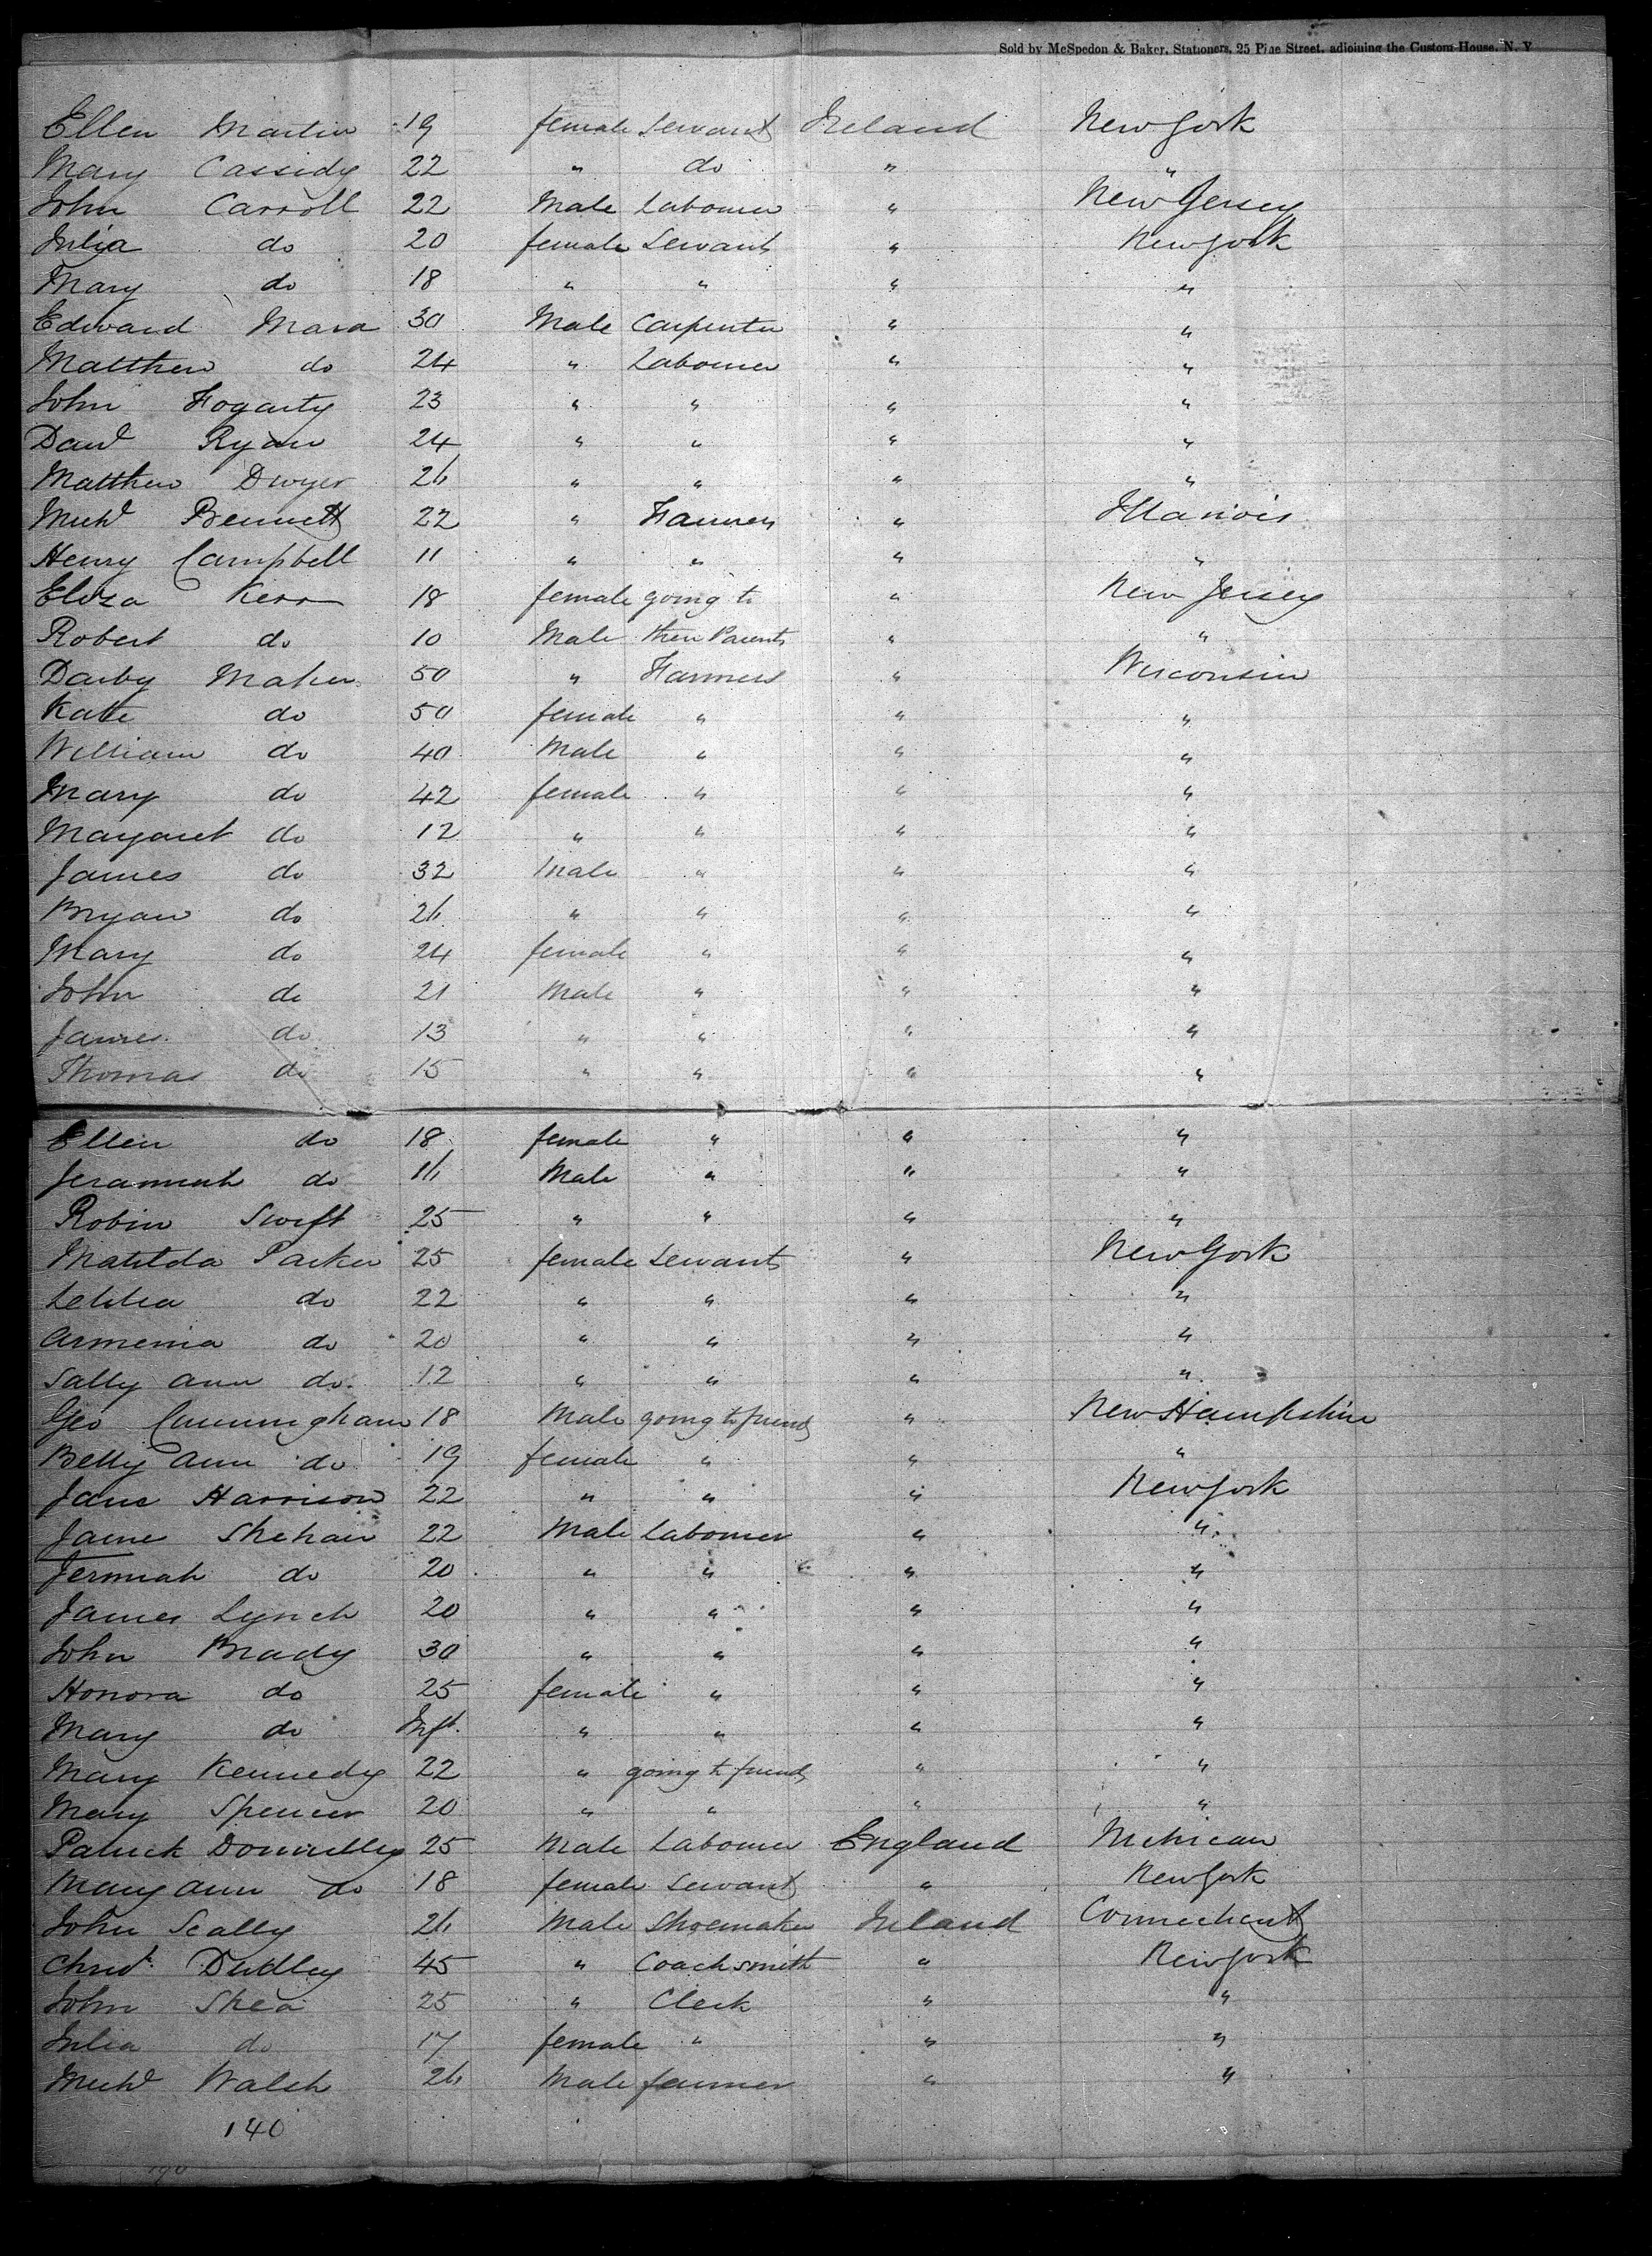 Sold by McSpedon & Baker, Stationers, 25 Pine Street, adjoining the Custom-House, N. Y
Ellen Martin 19 female Servant Ireland New York
Mary Cassidy 22 " do " "
John Carroll 22 Male Labourer " New Jersey
Julia do 20 female Servant " New York
Mary do 18 " " " "
Edward Mara 30 Male Carpenter " "
Matthew do 24 " Labourer " "
John Fogarty 23 " " " "
Davd Ryan 24 " " " "
Matthew Dwyer 26 " " " "
Michl Bennett 22 " Farmer " Illanois
Henry Campbell 11 " " " "
Eliza Kerr 18 female going to " New Jersey
Robert do 10 Male their Parents " "
Darby Maher 50 " Farmers " Wisconsin
Kate do 50 female " " "
William do 40 Male " " "
Mary do 42 female " " "
Margaret do 12 " " " "
James do 32 Male " " "
Bryan do 26 " " " "
Mary do 24 female " " "
John do 21 Male " " "
James do 13 " " " "
Thomas do 15 " " " "
Ellen do 18 female " " "
Jeramiah do 16 Male " " "
Robin Swift 25 " " " "
Matilda Parker 25 female Servants " New York
Letitia do 22 " " " "
Armenia do 20 " " " "
Sally Ann do 12 " " " "
Geo Cunningham 18 Male going to friends " New Hampshire
Betty Ann do 19 female " " "
Jane Harrison 22 " " " New York
Jame Shehan 22 Male Labourer " "
Jermiah do 20 " " " "
James Lynch 20 " " " "
John Brady 30 " " " "
Honora do 25 female " " "
Mary do Inft. " " " "
Mary Kennedy 22 " going to friends " "
Mary Spencer 20 " " " "
Patrick Donnelly 25 Male Labourer England Mchican
Mary Ann do 18 female Servant " New York
John Scally 26 Male Shoemaker Ireland Connecticut
Christ. Dudley 45 " Coachsmith " New York
John Shea 25 " Clerk " "
Julia do 17 female " " "
Michl Walsh 26 Male farmer " "
140